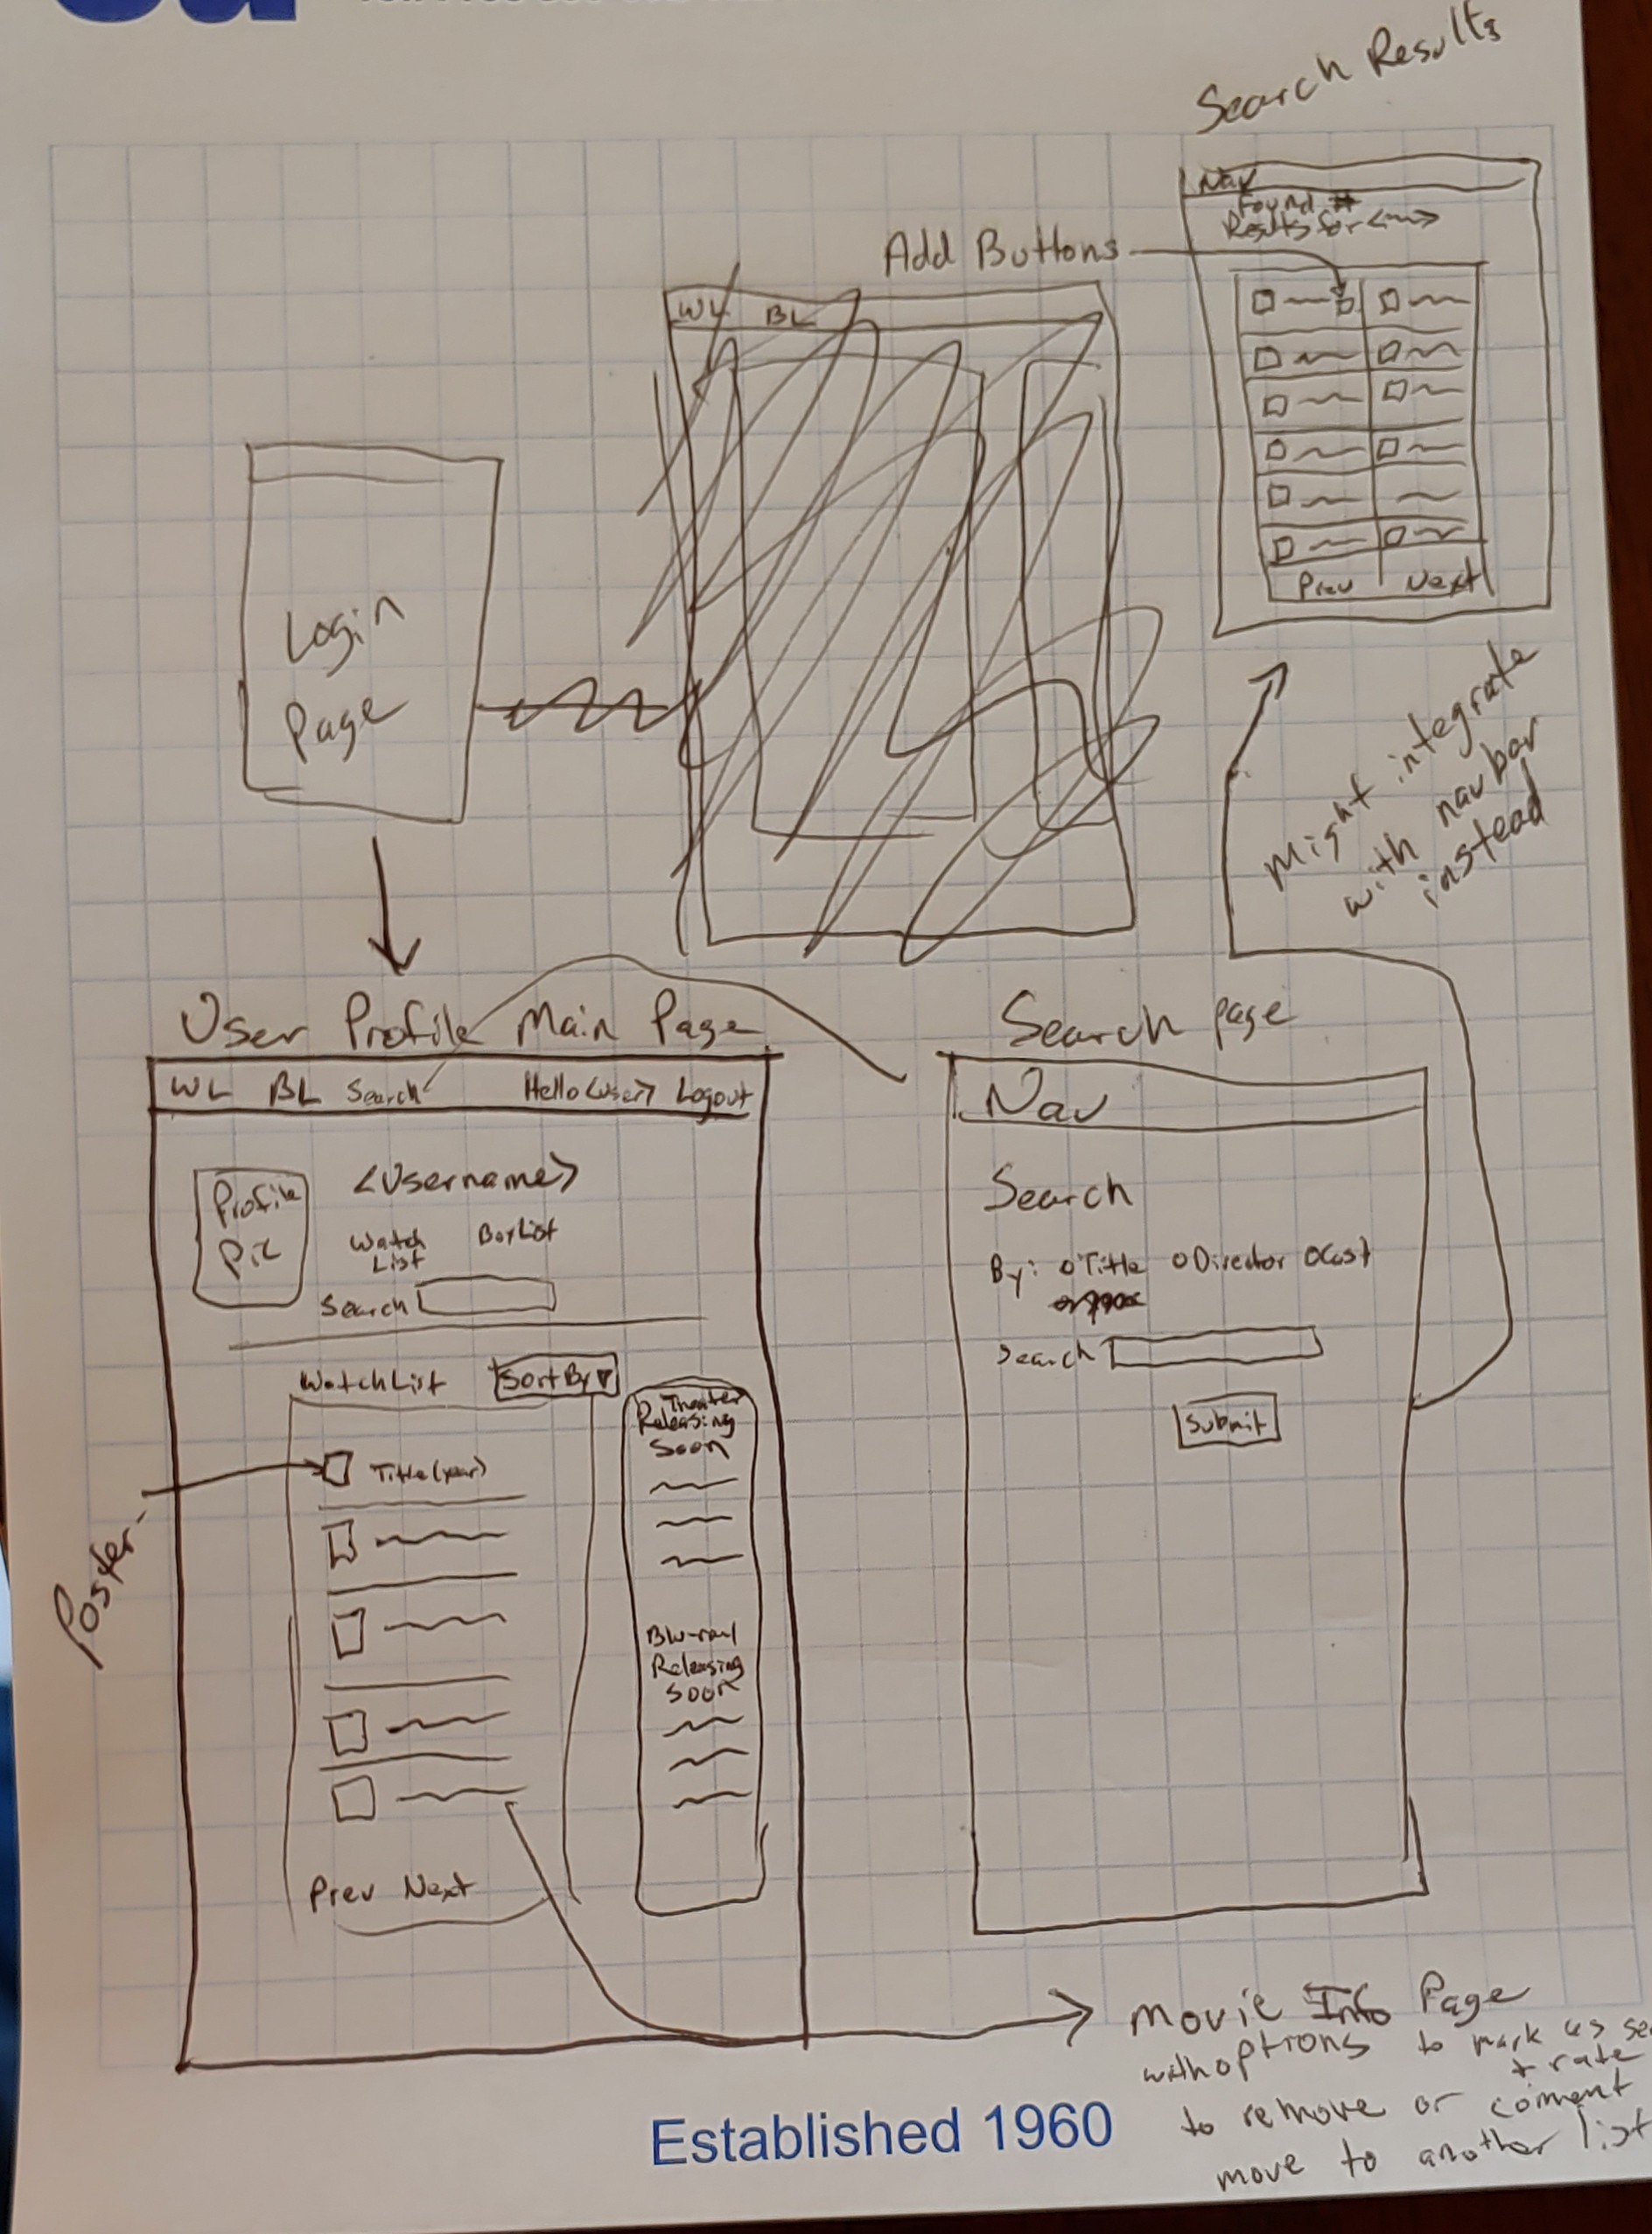 Search Results
Nav
Found #
Results for <~~>
Add Buttons
Prev Next
WL BL
Login
Page
Might integrate
with navbar
instead
User Profile Main Page
WL BL Search Hello <user> Logout
Profile
Pic
<Username>
Watch
List
BuyList
Search
WatchList
Sort By ▼
Poster
Title (year)
Prev Next
Theater
Releasing
Soon
Blu-ray
Releasing
Soon
Search page
Nav
Search
By: o Title o Director o Cast
Search
Submit
Movie Info Page
with options to mark as
+ rate
to remove or comment
move to another list
Established 1960